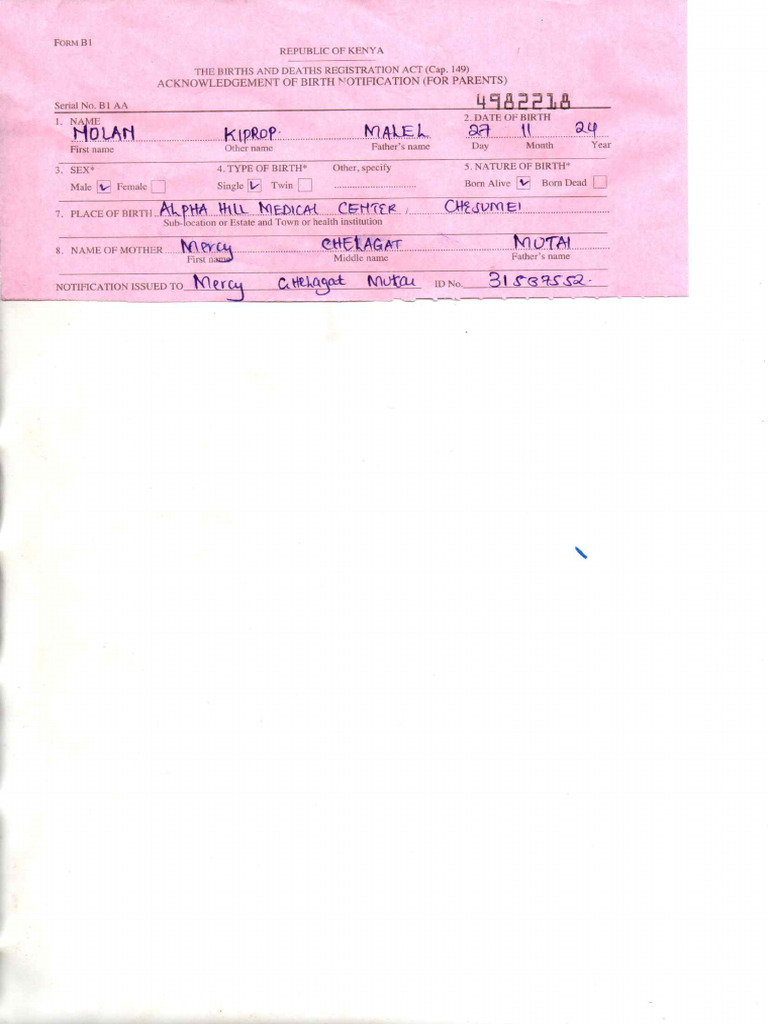 FORM B1
REPUBLIC OF KENYA
THE BIRTHS AND DEATHS REGISTRATION ACT (Cap. 149)
ACKNOWLEDGEMENT OF BIRTH NOTIFICATION (FOR PARENTS)
Serial No. B1 AA 4982218
1. NAME 2. DATE OF BIRTH
NOLAN KIPROP MALEL 27 11 24
First name Other name Father's name Day Month Year
3. SEX* 4. TYPE OF BIRTH* Other, specify 5. NATURE OF BIRTH*
Male ✓ Female Single ✓ Twin Born Alive ✓ Born Dead
7. PLACE OF BIRTH ALPHA HILL MEDICAL CENTER, CHESUMEI
Sub-location or Estate and Town or health institution
8. NAME OF MOTHER Mercy CHELAGAT MUTAI
First name Middle name Father's name
NOTIFICATION ISSUED TO Mercy Chelagat Mutai ID No.